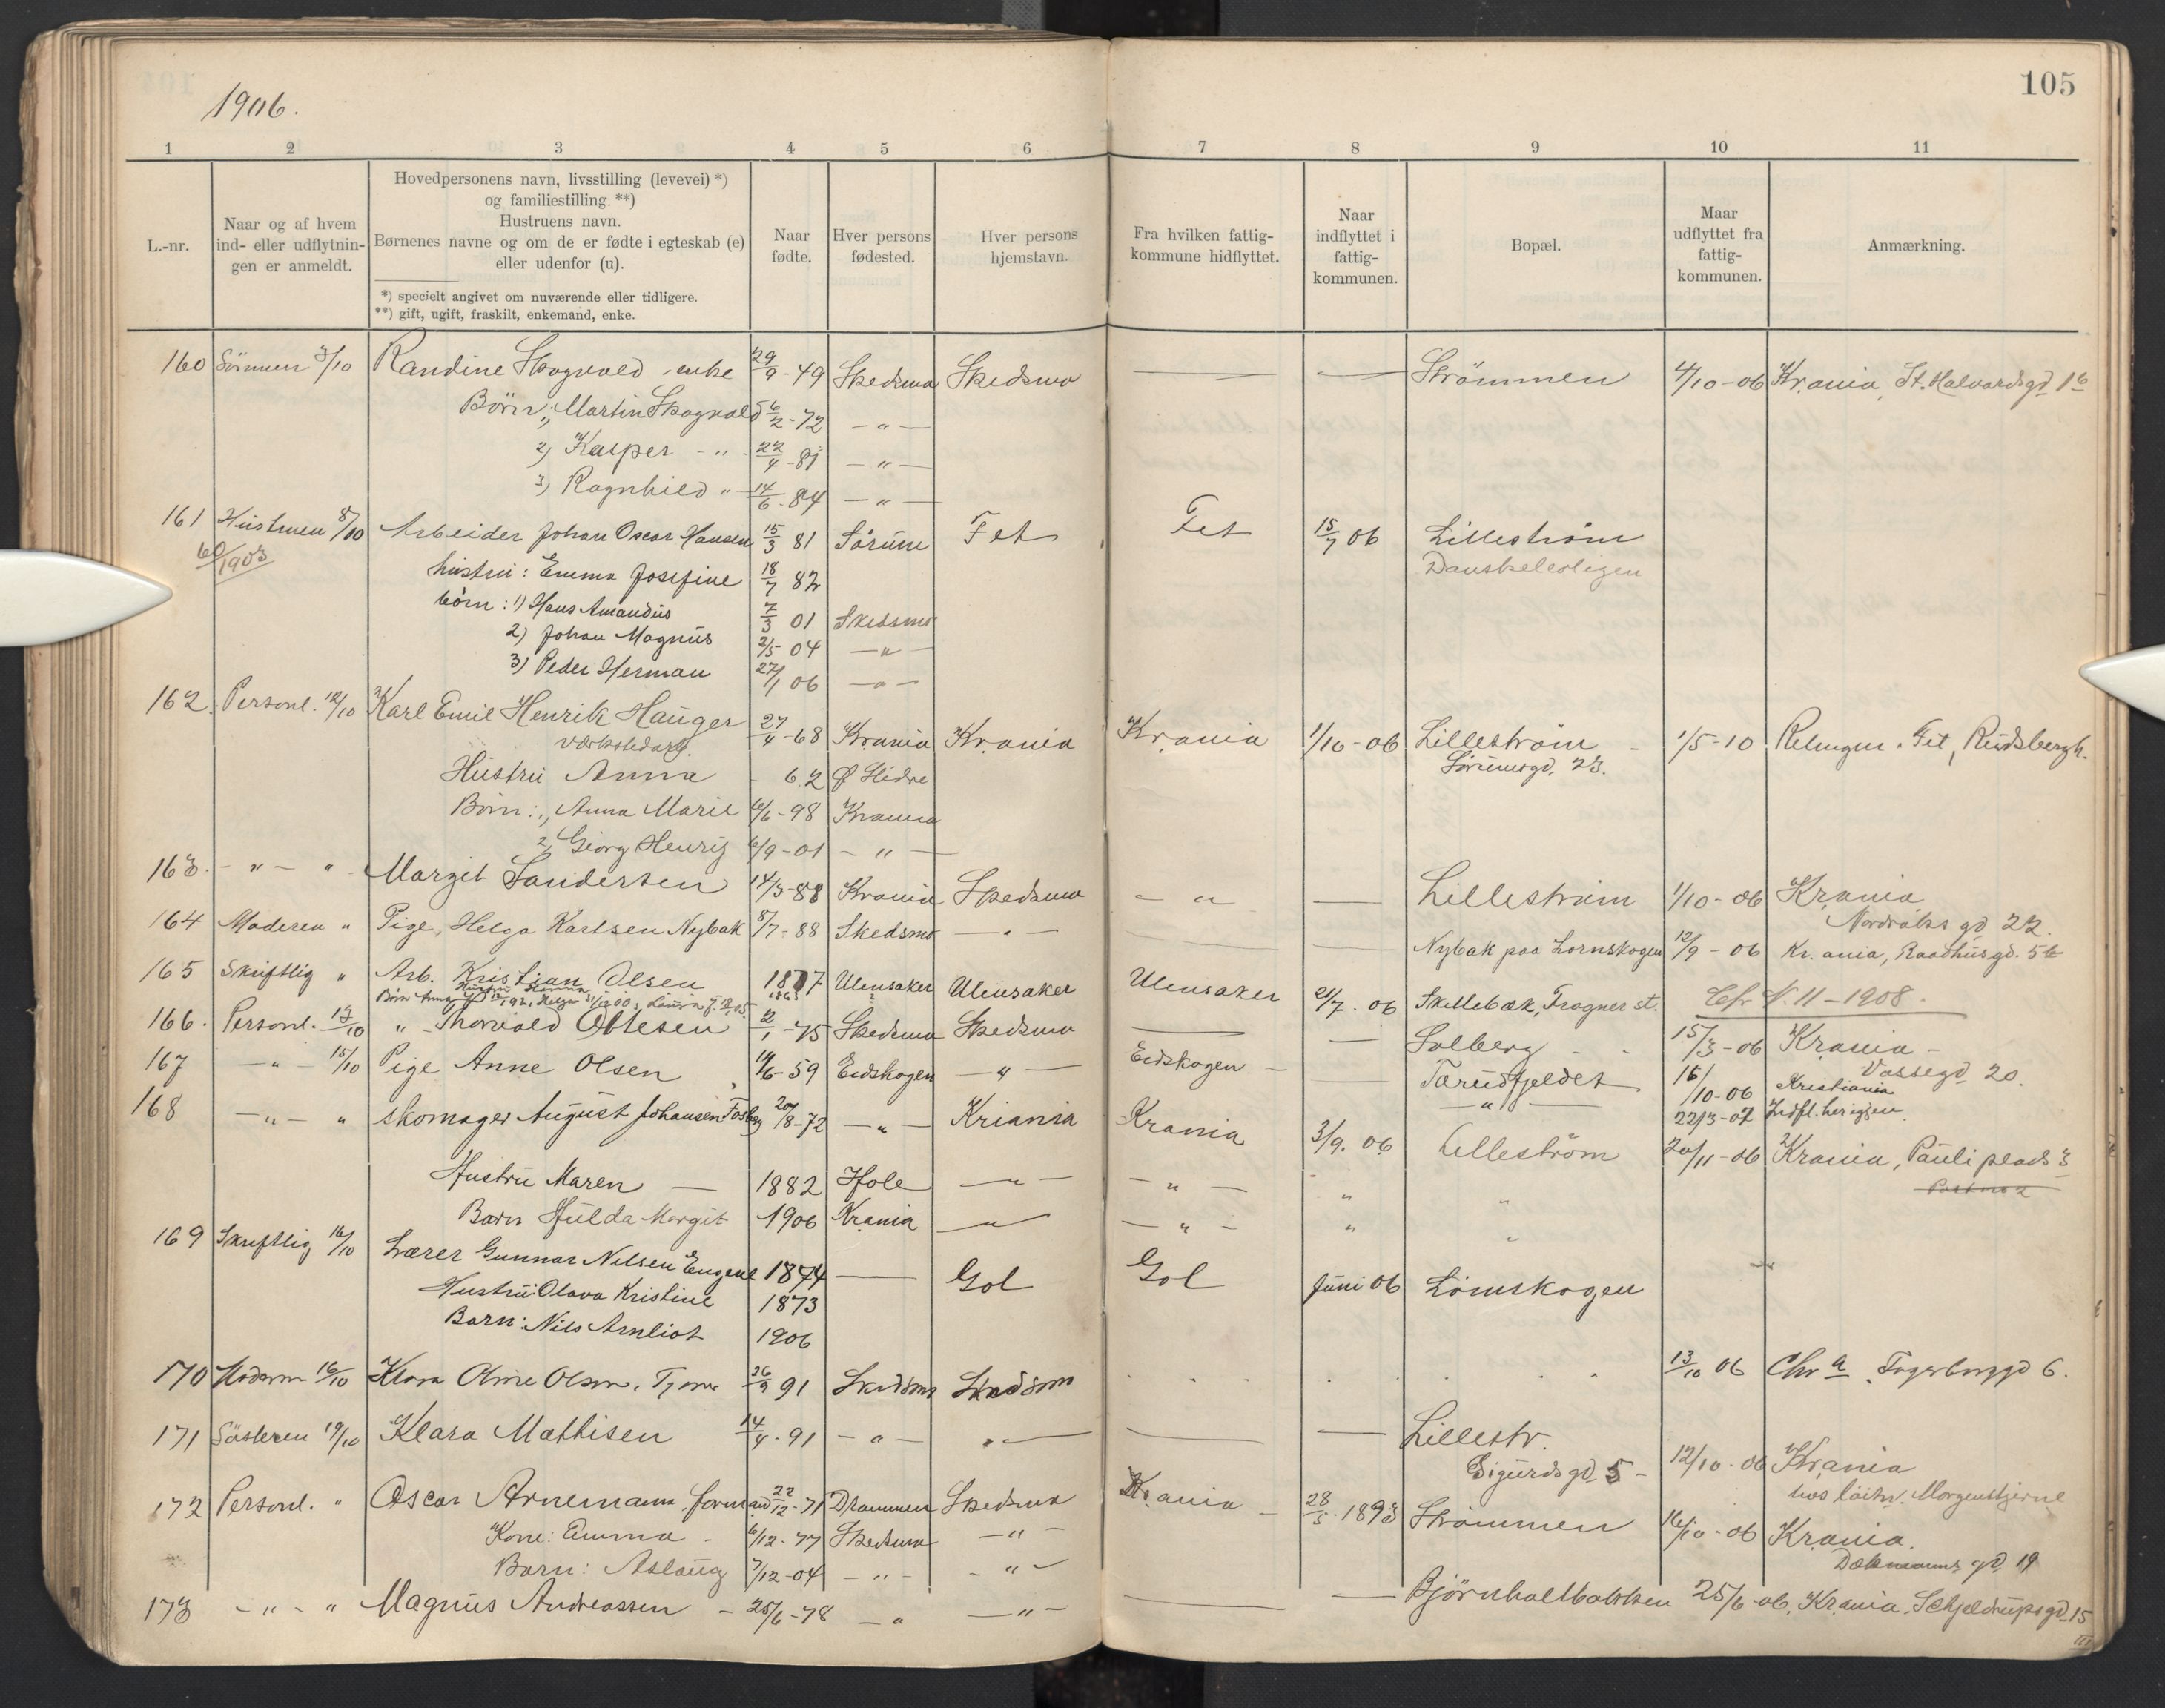 105
1906.
1 2 3 4 5 6 7 8 9 10 11
L.-nr.
Naar og af hvem
ind- eller udflytnin-
gen er anmeldt.
Hovedpersonens navn, livsstilling (levevei) *)
og familiestilling. **)
Hustruens navn.
Børnenes navne og om de er fødte i egteskab (e)
eller udenfor (u).
*) specielt angivet om nuværende eller tidligere.
**) gift, ugift, fraskilt, enkemand, enke.
Naar
fødte.
Hver persons
fødested.
Hver persons
hjemstavn.
Fra hvilken fattig-
kommune hidflyttet.
Naar
indflyttet i
fattig-
kommunen.
Bopæl.
Maar
udflyttet fra
fattig-
kommunen.
Anmærkning.
160 Sönnen 3/10 Randine Skogvold, enke 29/9-49 Skedsmo Skedsmo — — Strömmen 4/10-06 Kr.ania, St. Halvardsgd 16
Börn: 1, Martin Skogvold 6/2-72 — " —
2, Kasper - " 22/4-81 — " —
3, Ragnhild " 14/6-84 — " —
161 Hustruen 8/10 Arbeider Johan Oscar Hansen 15/3 81 Sörum Fet Fet 15/7 06 Lilleström
60/1903 hustru: Emma Josefine 18/7 82
börn: 1) Hans Amandus 7/3 01 Skedsmo
2) Johan Magnus 2/5 04 — " —
3) Peder Herman 27/1 06 — " —
162. Personl. 12/10 Karl Emil Henrik Hauger 27/4-68 Kr.ania Kr.ania Kr.ania 1/10-06 Lilleström 1/5-10 Relingen, Fet, Rudsbergh.
værkstedarb. Sörumsgd. 23.
Hustru Anna - 62 Ø Slidre
Börn: 1, Anna Marie 6/6-98 Kr.ania
2, Georg Henrig 6/9-01 — " —
163. - " - " - Margit Sandersen 14/3-88 Kr.ania Skedsmo - " - — Lilleström 1/10-06 Kr.ania
Nordraaks gd 22.
164 Moderen " Pige, Helga Karlsen Nybak 8/7-88 Skedsmo — " — — Nybak paa Lørnskogen 12/9-06 Kr.ania, Raadhusgd. 5
165 Skriftlig " Arb. Kristian Olsen 1877 Ulensaker Ulensaker Ulensaker 21/7.06 Skillebæk, Frogner st. Cfr N. 11-1908.
Hustru Hanna 1863
166. Personl. 13/10 " Thorvald Ottesen 2/1-75 Skedsmo Skedsmo — — Solberg 15/3-06 Kr.ania -
Vossegd 20.
167 — " — 15/10 Pige Anne Olsen 14/6-59 Eidskogen — " — Eidskogen — Tærudfjeldet 15/10-06 Kristiania
— " — 22/3-07 Indfl. her igjen.
168 — " — " skomager August Johansen 20/8-72 — " — Kriania Krania 3/9.06 Lilleström 20/11-06 Krania, Pauli plads 3
Hustru Maren — 1882 Hole — " — — " — " "
Barn Hulda Margit 1906 Krania — " — — " — " "
169 Skriftlig 16/10 Lærer Gunnar Nilsen Engene 1874 — Gol Gol Juni 06 Lörnskogen
Hustru: Olava Kristine 1873
Barn: Nils Arnliot 1906
170 Moderen 16/10 Klara Oline Olsen, Tjener 26/9 91 Skedsmo Skedsmo 13/10 06 Chr a, Fagerborggd 6.
171 Søsteren 19/10 Klara Mathisen 14/4.91 — " — " — — Lillestr. 12/10.06 Kr.ania
Sigurdsgd 5 - hos løitn. Morgenstjerne
172 Personl. " Oscar Arnemann, formand 22/12-71 Drammen Skedsmo Kr.ania - 28/5.1893 Strömmen 16/10-06 Kr.ania.
Kone: Emma - 6/12-77 Skedsmo — " — Dækmanns gd 19
Barn: Aslaug 7/12-04 — " — — " —
173 - " - " Magnus Andreassen - 25/6-78 — " — " — — — Björnholtbakken 25/6-06, Kr.ania, Schjeldrups gd 15
III